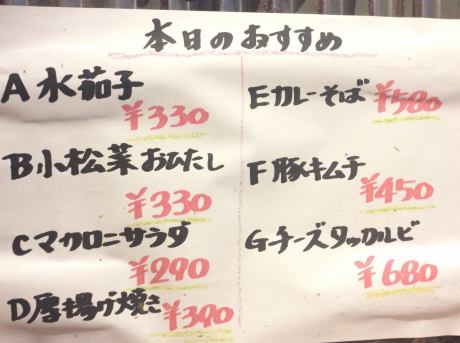 本日のおすすめ
A水茄子
¥330
B小松菜おひたし
¥330
Cマカロニサラダ
¥290
D厚揚げ焼き
¥390
Eカレーそば
¥580
F豚キムチ
¥450
Gチーズタッカルビ
¥680